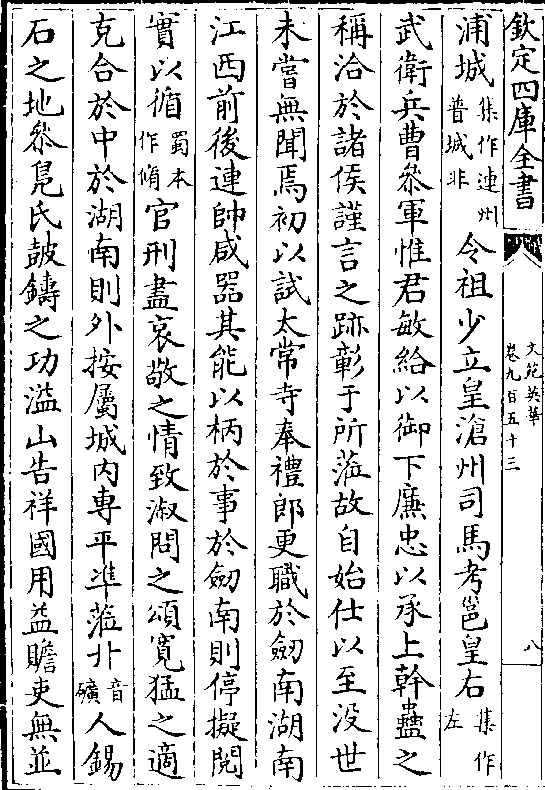 欽定四庫全書
文苑英華
卷九百五十三
八
浦城集作連州普城非令祖少立皇滄州司馬考邕皇右集作左
武衛兵曹叅軍惟君敏給以御下廉忠以承上幹蠱之
稱洽於諸侯謹言之跡彰于所蒞故自始仕以至没世
未嘗無聞焉初以試太常寺奉禮郎更職於劒南湖南
江西前後連帥咸器其能以柄於事於劒南則停擬閱
實以循蜀本作脩官刑盡哀敬之情致淑問之頌寛猛之適
克合於中於湖南則外按屬城内専平凖蒞卝音礦人錫
石之地叅鳬氏鼓鑄之功溢山告祥國用益贍吏無並